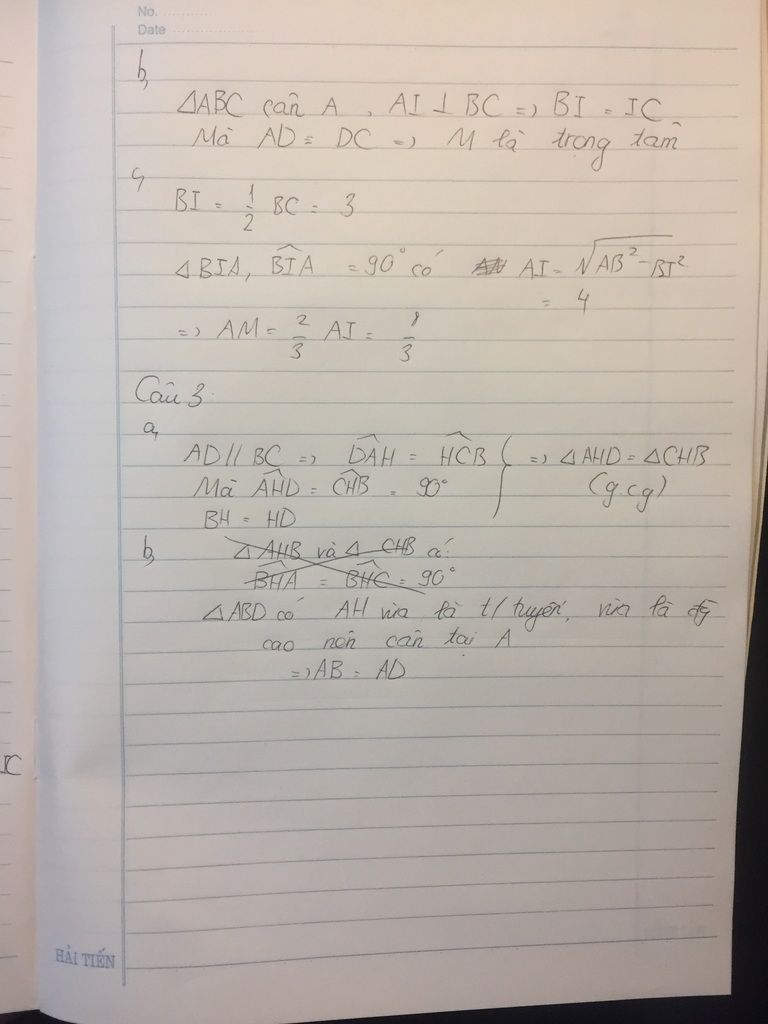 No. ............
Date ....................
b,
△ABC cân A, AI ⊥ BC => BI = IC
Mà AD = DC => M là trọng tâm
c,
BI = 1/2 BC = 3
△BIA, \widehat{BIA} = 90° có AI = √(AB² - BI²)
= 4
=> AM = 2/3 AI = 8/3
Câu 3:
a,
AD // BC => \widehat{DAH} = \widehat{HCB} } => △AHD = △CHB
Mà \widehat{AHD} = \widehat{CHB} = 90° (g.c.g)
BH = HD
b, △AHB và △CHB có:
\widehat{BHA} = \widehat{BHC} = 90°
△ABD có AH vừa là t/tuyến, vừa là đg
cao nên cân tại A
=> AB = AD
IC
HẢI TIẾN